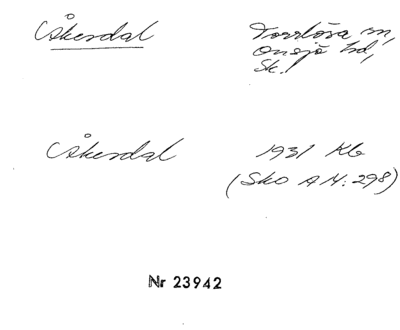 Åkerdal
Torrlösa sn,
Onsjö hd,
Sk.
Åkerdal
1931 Kb
(Sko AM: 298)
Nr 23942